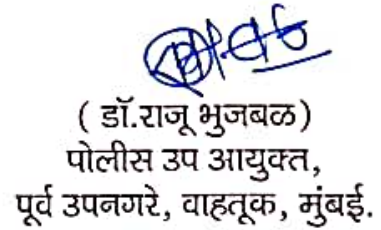 ( डॉ.राजू भुजबळ)
पोलीस उप आयुक्त,
पूर्व उपनगरे, वाहतूक, मुंबई.